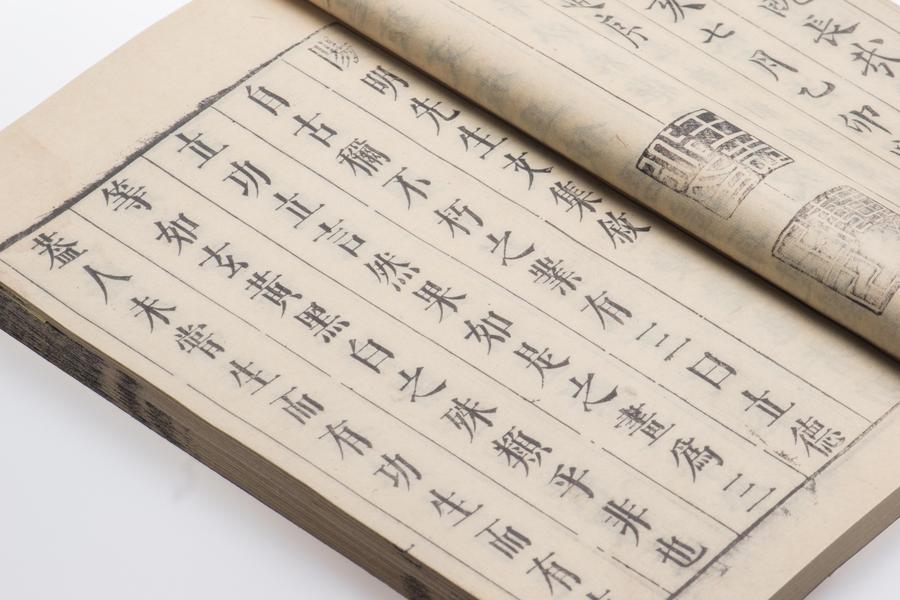 長芬
亥七月乙卯
序
陽明先生文集敘
自古穪不朽之業有三曰立德
立功立言然果如是之畫爲三
等如玄黃黑白之殊類乎非也
葢人未嘗生而有功生而有